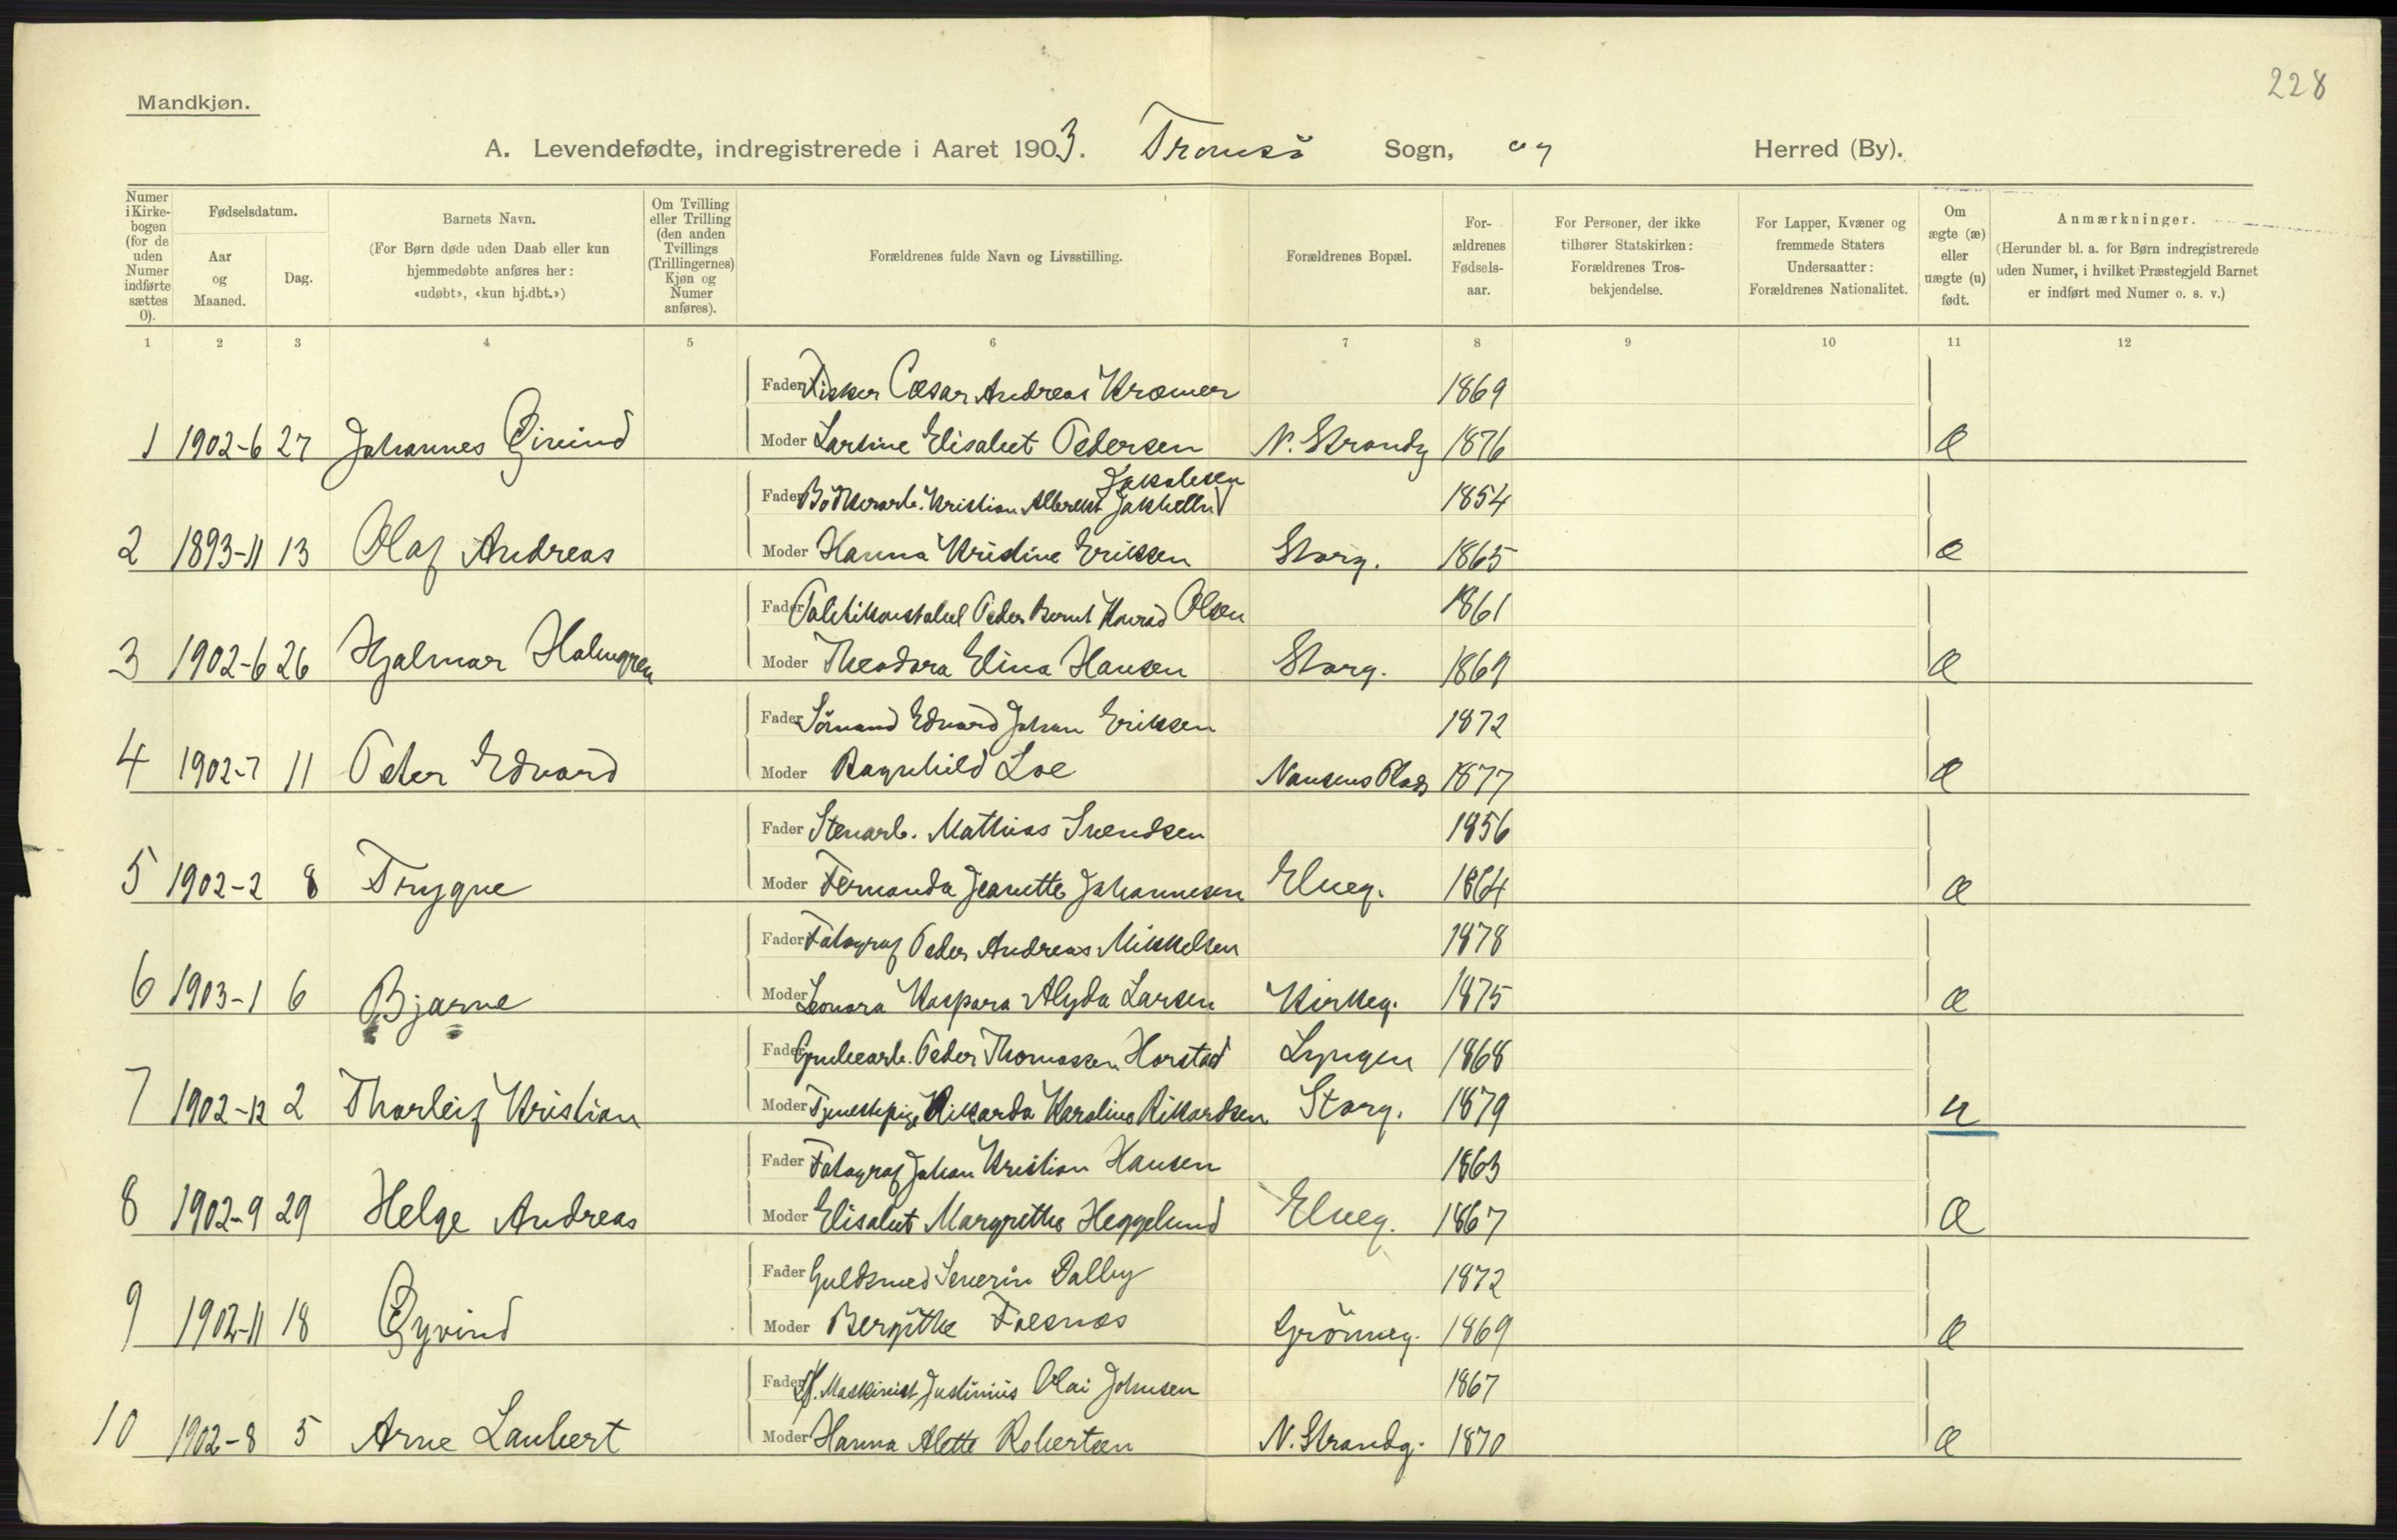 228
Mandkjøn.
A. Levendefødte, indregistrerede i Aaret 1903. Tromsö Sogn, og Herred (By).
Numer i Kirkebogen (for de uden Numer indførte sættes 0). Fødselsdatum. Aar og Maaned. Dag. Barnets Navn. (For Børn døde uden Daab eller kun hjemmedøbte anføres her: «udøbt», «kun hj.dbt.») Om Tvilling eller Trilling (den anden Tvillings (Trillingernes) Kjøn og Numer anføres). Forældrenes fulde Navn og Livsstilling. Forældrenes Bopæl. Forældrenes Fødselsaar. For Personer, der ikke tilhører Statskirken: Forældrenes Trosbekjendelse. For Lapper, Kvæner og fremmede Staters Undersaatter: Forældrenes Nationalitet. Om ægte (æ) eller uægte (u) født. Anmærkninger. (Herunder bl. a. for Børn indregistrerede uden Numer, i hvilket Præstegjeld Barnet er indført med Numer o. s. v.)
1 2 3 4 5 6 7 8 9 10 11 12
Fader Fisker Cæsar Andreas Kræmer 1869
1 1902-6 27 Johannes Eivind Moder Lartine Elisabet Pedersen N. Strandg 1876 æ
Jakobsen
Fader Bödkerarb. Kristian Albrekt Jakhelln 1854
2 1893-11 13 Olaf Andreas Moder Hanna Kristine Eriksen Storg. 1865 æ
Fader Politikonstabel Peder Bernt Konrad Olsen 1861
3 1902-6 26 Hjalmar Holmgren Moder Theodora Elina Hansen Storg. 1869 æ
Fader Sömand Edvard Johan Eriksen 1872
4 1902-7 11 Peter Edvard Moder Ragnhild Loe Nansens Plads 1877 æ
Fader Stenarb. Mathias Svendsen 1856
5 1902-2 8 Trygve Moder Fernanda Jeanette Johannesen Elveg. 1864 æ
Fader Fotograf Peder Andreas Mikkelsen 1878
6 1903-1 6 Bjarne Moder Leonora Kaspara Alyda Larsen Kirkeg. 1875 æ
Fader Grubearb. Peder Thomassen Horstad Lyngen 1868
7 1902-12 2 Thorleif Kristian Moder Tjenestepige Rikarda Karoline Rikardsen Storg. 1879 u
Fader Fotograf Johan Kristian Hansen 1863
8 1902-9 29 Helge Andreas Moder Elisabet Margrethe Heggelund Elveg. 1867 æ
Fader Guldsmed Severin Dalby 1872
9 1902-11 18 Øyvind Moder Bergitte Foesnæs Grönneg. 1869 æ
Fader Maskinist Justinius Olai Johnsen 1867
10 1902-8 5 Arne Laubert Moder Hanna Alette Robertsen N. Strandg. 1870 æ